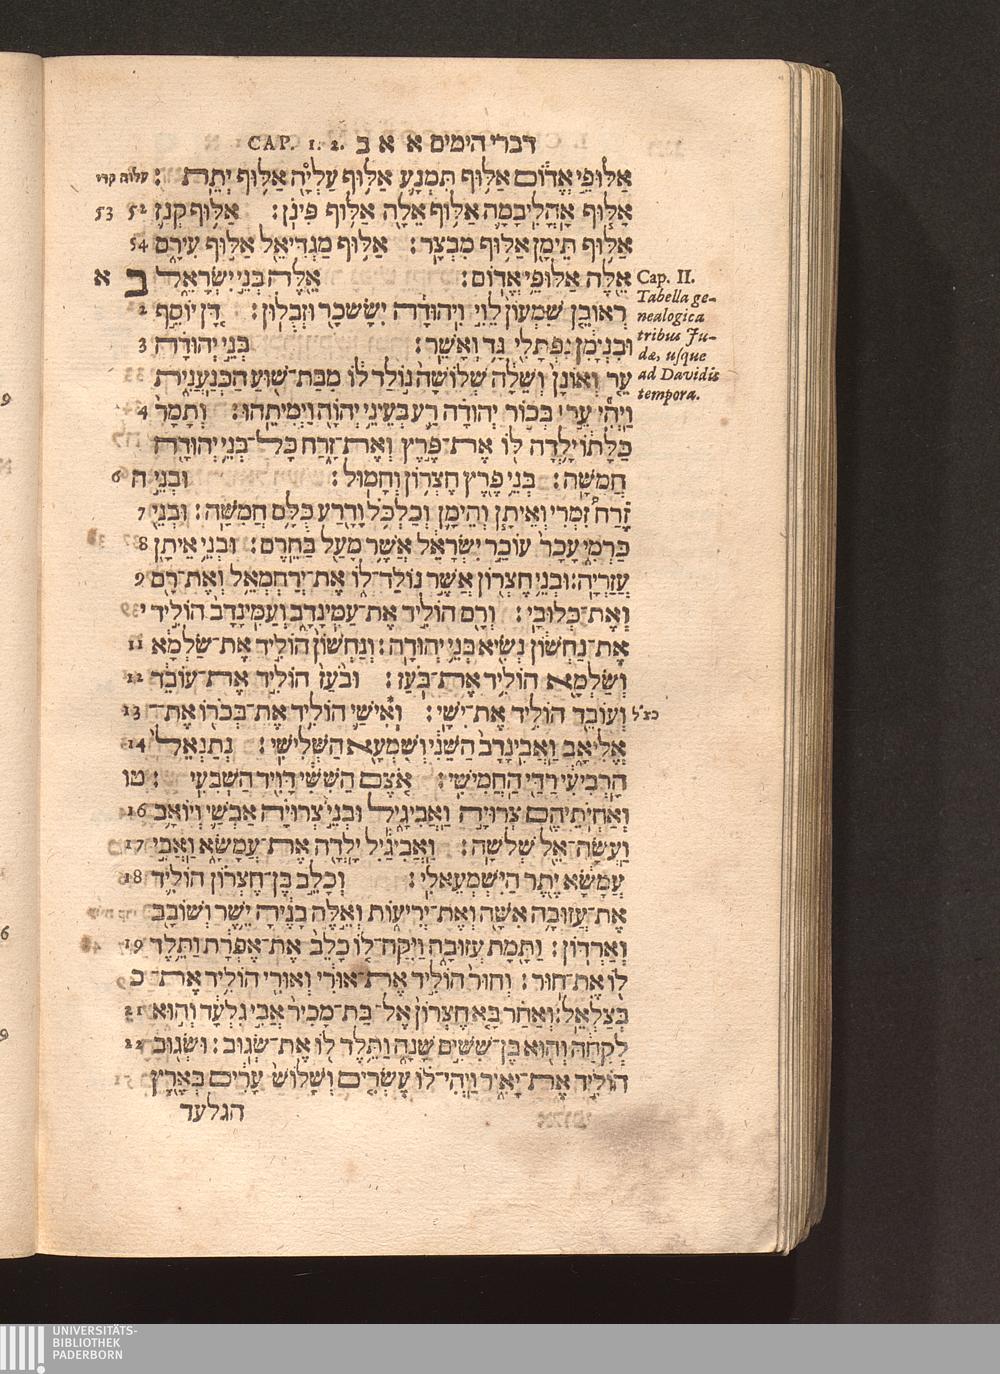 דברי הימים א א ב CAP. 1. 2.
אַלּוּפֵי אֱדוֹם אַלּוּף תִּמְנָע אַלּוּף עַלְיָה אַלּוּף יְתֵת׃
אַלּוּף אָהֳלִיבָמָה אַלּוּף אֵלָה אַלּוּף פִּינֹן׃ אַלּוּף קְנַז 52 53
אַלּוּף תֵּימָן אַלּוּף מִבְצָר׃ אַלּוּף מַגְדִּיאֵל אַלּוּף עִירָם 54
אֵלֶּה אַלּוּפֵי אֱדוֹם׃ אֵלֶּה בְּנֵי יִשְׂרָאֵל ב א
רְאוּבֵן שִׁמְעוֹן לֵוִי וִיהוּדָה יִשָּׂשכָר וּזְבֻלוּן׃ דָּן יוֹסֵף 2
וּבִנְיָמִן נַפְתָּלִי גָּד וְאָשֵׁר׃ בְּנֵי יְהוּדָה 3
עֵר וְאוֹנָן וְשֵׁלָה שְׁלוֹשָׁה נוֹלַד לוֹ מִבַּת־שׁוּעַ הַכְּנַעֲנִית
וַיְהִי עֵר בְּכוֹר יְהוּדָה רַע בְּעֵינֵי יְהוָה וַיְמִיתֵהוּ׃ וְתָמָר 4
כַּלָּתוֹ יָלְדָה לּוֹ אֶת־פֶּרֶץ וְאֶת־זָרַח כָּל־בְּנֵי יְהוּדָה
חֲמִשָּׁה׃ בְּנֵי פֶרֶץ חֶצְרוֹן וְחָמוּל׃ וּבְנֵי ה 6
זֶרַח זִמְרִי וְאֵיתָן וְהֵימָן וְכַלְכֹּל וָדָרַע כֻּלָּם חֲמִשָּׁה׃ וּבְנֵי 7
כַּרְמִי עָכָר עוֹכֵר יִשְׂרָאֵל אֲשֶׁר מָעַל בַּחֵרֶם׃ וּבְנֵי אֵיתָן 8
עֲזַרְיָה׃ וּבְנֵי חֶצְרוֹן אֲשֶׁר נוֹלַד־לוֹ אֶת־יְרַחְמְאֵל וְאֶת־רָם 9
וְאֶת־כְּלוּבָי׃ וְרָם הוֹלִיד אֶת־עַמִּינָדָב וְעַמִּינָדָב הוֹלִיד י
אֶת־נַחְשׁוֹן נְשִׂיא בְּנֵי יְהוּדָה׃ וְנַחְשׁוֹן הוֹלִיד אֶת־שַׂלְמָא 11
וְשַׂלְמָא הוֹלִיד אֶת־בֹּעַז׃ וּבֹעַז הוֹלִיד אֶת־עוֹבֵד 12
וְעוֹבֵד הוֹלִיד אֶת־יִשָׁי׃ וְאִישַׁי הוֹלִיד אֶת־בְּכֹרוֹ אֶת־ 13
אֱלִיאָב וַאֲבִינָדָב הַשֵּׁנִי וְשִׁמְעָא הַשְּׁלִישִׁי׃ נְתַנְאֵל 14
הָרְבִיעִי רַדַּי הַחֲמִישִׁי׃ אֹצֶם הַשִּׁשִּׁי דָּוִיד הַשְּׁבִעִי׃ טו
וְאַחְיֹתֵיהֶם צְרוּיָה וַאֲבִיגָיִל וּבְנֵי צְרוּיָה אַבְשַׁי וְיוֹאָב 16
וַעֲשָׂה־אֵל שְׁלֹשָׁה׃ וַאֲבִיגַיִל יָלְדָה אֶת־עֲמָשָׂא וַאֲבִי 17
עֲמָשָׂא יֶתֶר הַיִּשְׁמְעֵאלִי׃ וְכָלֵב בֶּן־חֶצְרוֹן הוֹלִיד 18
אֶת־עֲזוּבָה אִשָּׁה וְאֶת־יְרִיעוֹת וְאֵלֶּה בָנֶיהָ יֵשֶׁר וְשׁוֹבָב
וְאַרְדּוֹן׃ וַתָּמָת עֲזוּבָה וַיִּקַּח־לוֹ כָלֵב אֶת־אֶפְרָת וַתֵּלֶד 19
לוֹ אֶת־חוּר׃ וְחוּר הוֹלִיד אֶת־אוּרִי וְאוּרִי הוֹלִיד אֶת־ כ
בְּצַלְאֵל׃ וְאַחַר בָּא חֶצְרוֹן אֶל־בַּת־מָכִיר אֲבִי גִלְעָד וְהוּא 21
לְקָחָהּ וְהוּא בֶּן־שִׁשִּׁים שָׁנָה וַתֵּלֶד לוֹ אֶת־שְׂגוּב׃ וּשְׂגוּב 22
הוֹלִיד אֶת־יָאִיר וַיְהִי־לוֹ עֶשְׂרִים וְשָׁלוֹשׁ עָרִים בְּאֶרֶץ
הגלעד
עלוה קרי
Cap. II.
Tabella ge-
nealogica
tribus Ju-
dæ, usque
ad Davidis
tempora.
UNIVERSITÄTS-
BIBLIOTHEK
PADERBORN